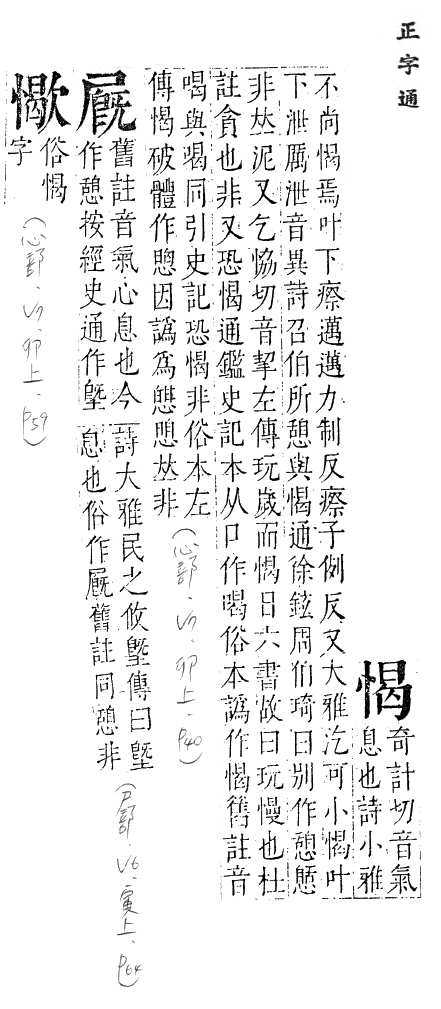 正字通
愒
奇計切音氣
息也詩小雅
不尚愒焉叶下瘵邁邁力制反瘵子例反又大雅汔可小愒叶
下泄厲泄音異詩召伯所憩與愒通徐鉉周伯琦曰別作憩㥷
非𠀤泥又乞恊切音挈左傳玩歲而愒日六書故曰玩慢也杜
註貪也非又恐愒通鑑史記本从口作喝俗本譌作愒舊註音
喝與喝同引史記恐愒非俗本左
傳愒破體作愳因譌爲㦣愳𠀤非
(心部.V7.卯上.P40)
㞃
舊註音氣心息也今
作憩按經史通作墍
詩大雅民之攸墍傳曰墍
息也俗作㞃舊註同憩非
(尸部.V6.寅上.P64)
㦣
俗愒
字
(心部.V7.卯上.P59)